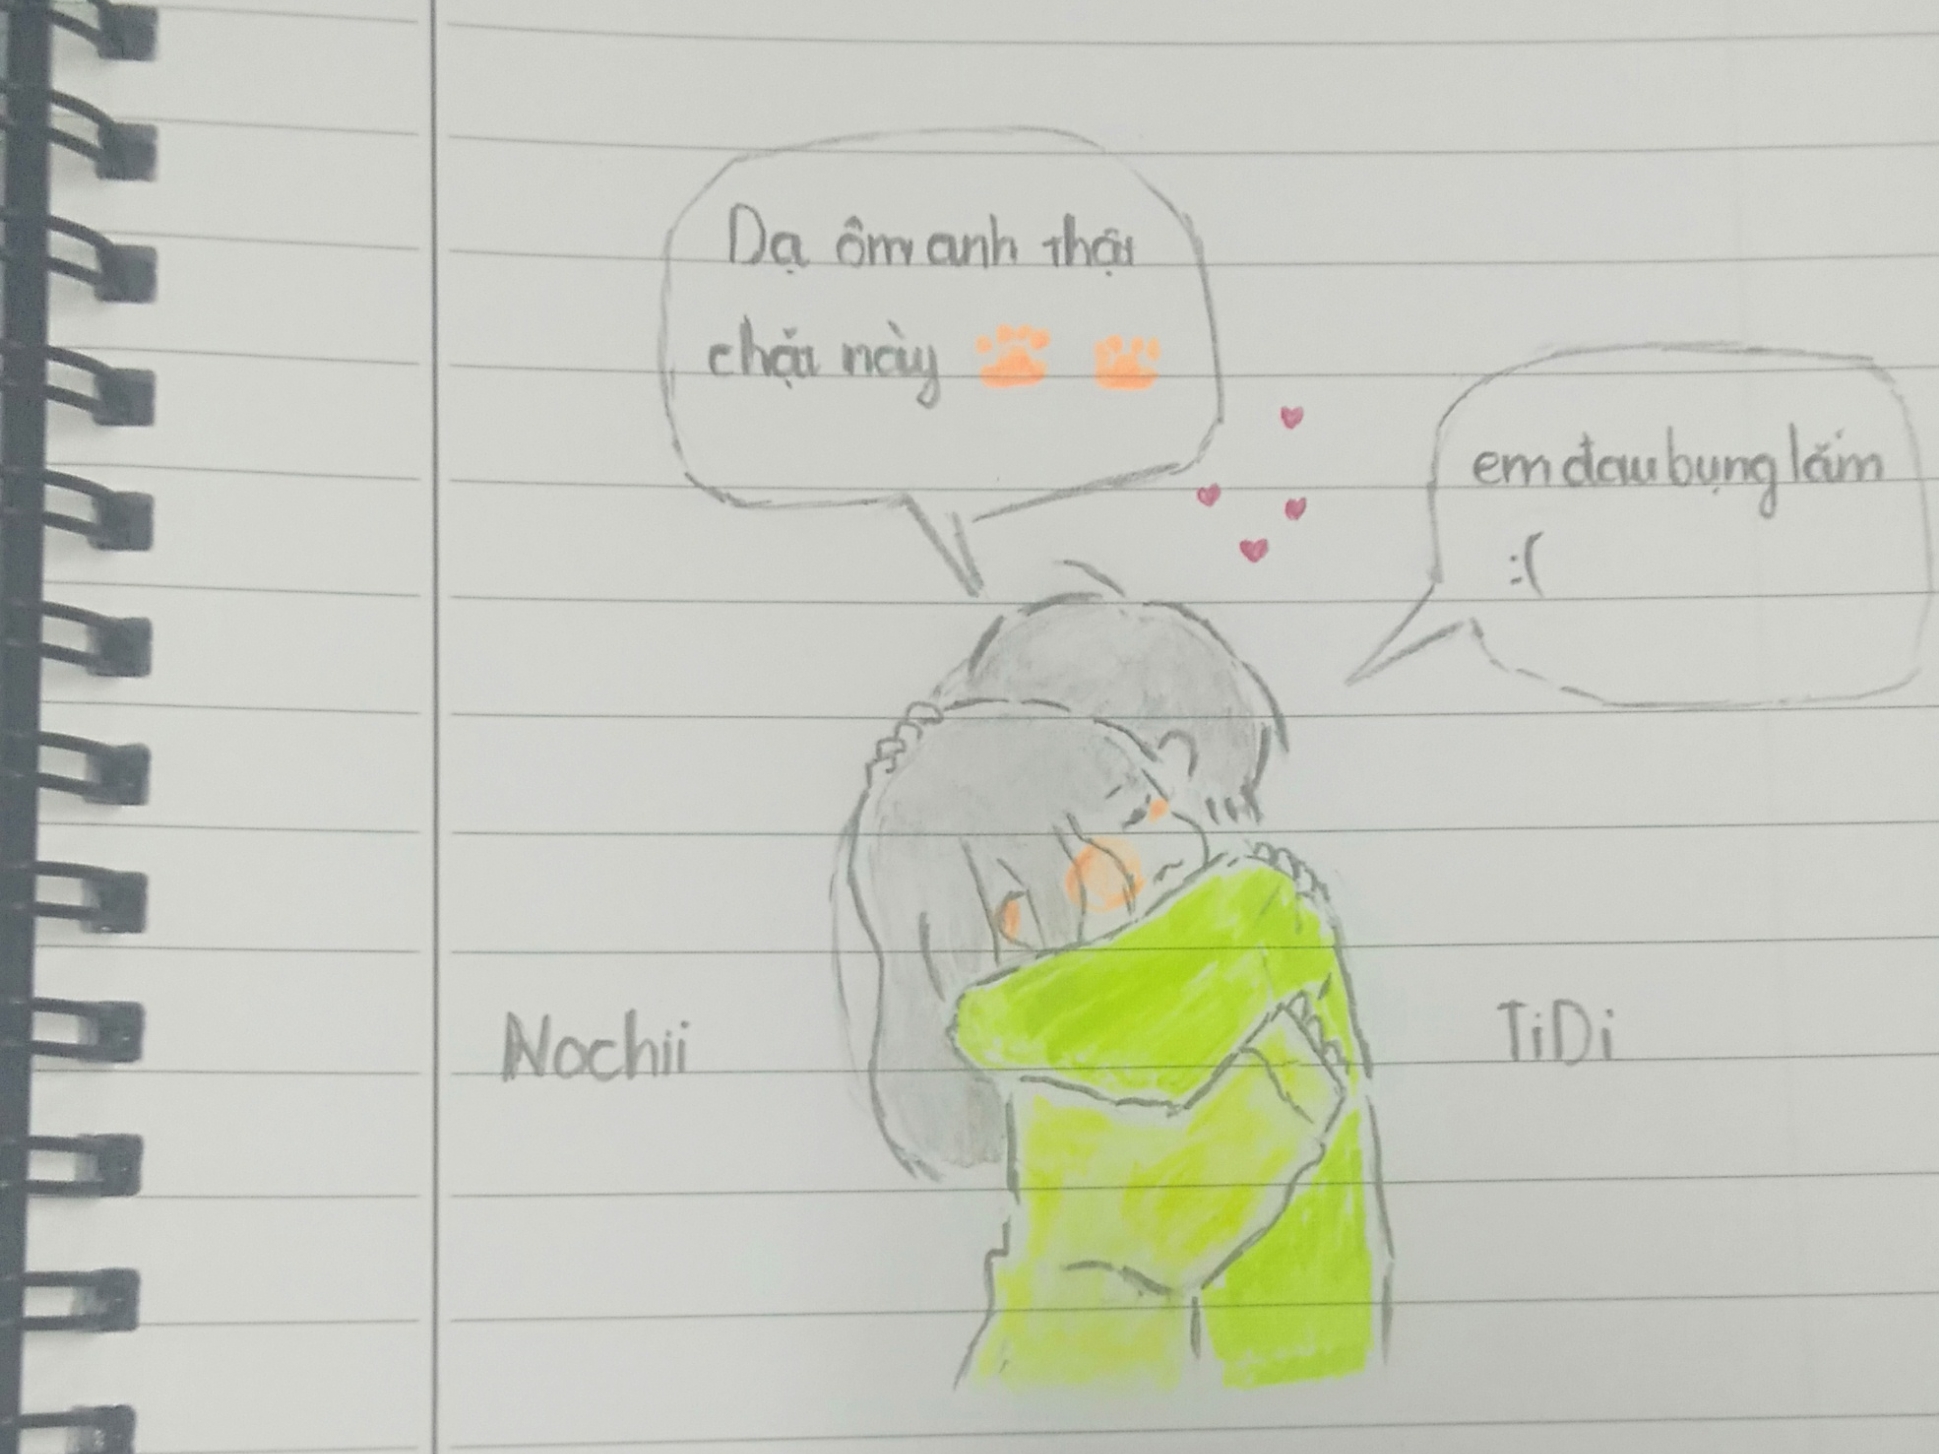 Dạ ôm anh thật
chặt này
em đau bụng lắm
:(
Nochii
TiDi